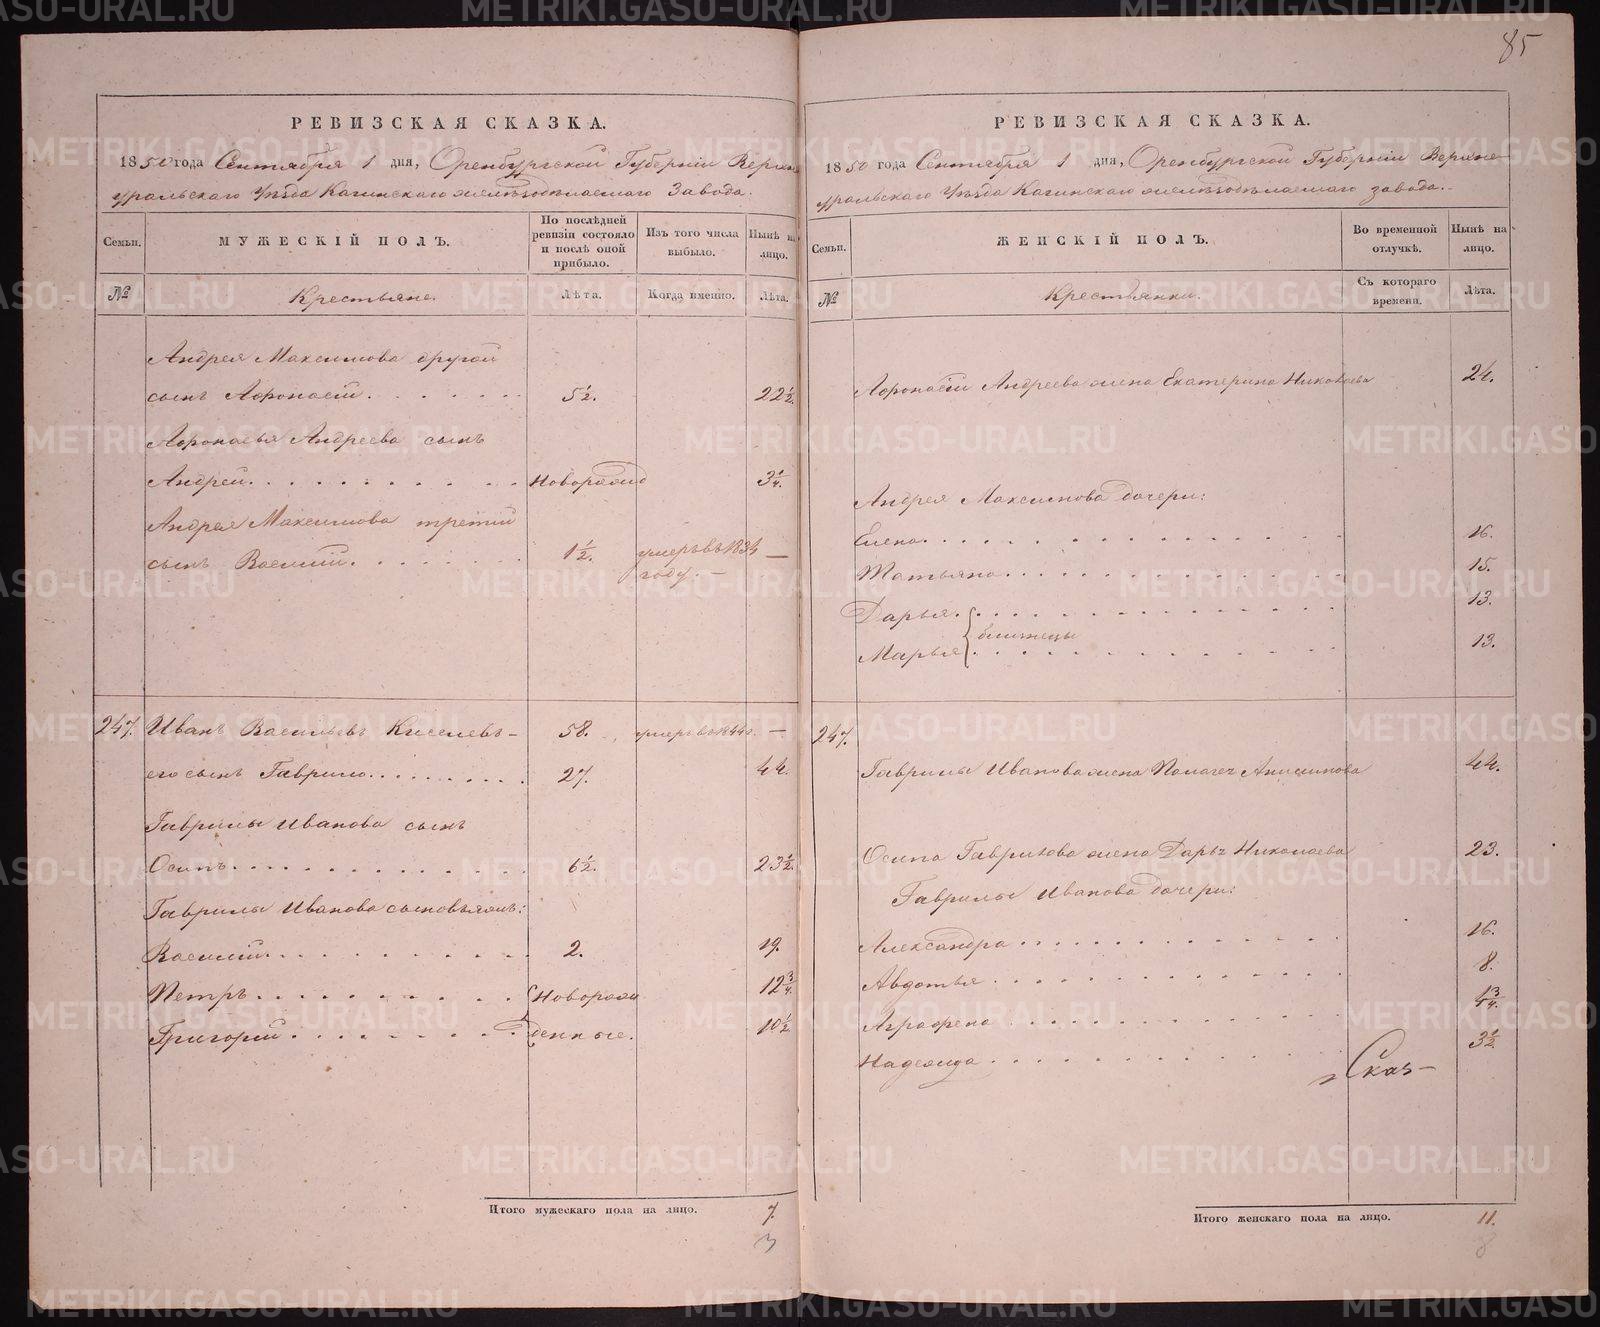 85
РЕВИЗСКАЯ СКАЗКА.
1850 года Сентября 1 дня, Оренбургской Губернiи Верхне-
уральскаго Уѣзда Кагинскаго железодѣлаемаго Завода.
Семьи.
МУЖЕСКIЙ ПОЛЪ.
По послѣдней
ревизiи состояло
и послѣ оной
прибыло.
Изъ того числа
выбыло.
Нынѣ на
лицо.
№
Крестьяне.
Лѣта.
Когда именно.
Лѣта.
Андрея Максимова другой
сынъ Афонасiй. 5½. 22½.
Афонасья Андреева сынъ
Андрей. Новорожд 3¼.
Андрея Максимова третiй
сынъ Василiй. 1½. умеръ въ 1834 —
году. —
247. Иванъ Васильевъ Киселевъ - 58. умеръ въ 1844 г. —
его сынъ Гаврило. 27. 44.
Гаврилы Иванова сынъ
Осипъ. 6½. 23½.
Гаврилы Иванова сыновья:
Василiй. 2. 19.
Петръ. Новорож 12¾.
Григорiй. денные. 10½
Итого мужескаго пола на лицо. 7.
3
РЕВИЗСКАЯ СКАЗКА.
1850 года Сентября 1 дня, Оренбургской Губернiи Верхне-
уральскаго Уѣзда Кагинскаго железодѣлаемаго завода.
Семьи.
ЖЕНСКIЙ ПОЛЪ.
Во временной
отлучкѣ.
Нынѣ на
лицо.
№
Крестьянки.
Съ котораго
времени.
Лѣта.
Афонасiй Андреева жена Екатерина Николаева 24.
Андрея Максимова дочери:
Елена. 16.
Татьяна. 15.
Дарья. 13.
близнецы
Марья 13.
247.
Гаврилы Иванова жена Анисимова 44.
Осипа Гаврилова жена Дарья Николаева 23.
Гаврилы Иванова дочери:
Александра 16.
Авдотья 8.
Аграфена ¾.
Надежда 3½
Сказ-
Итого женскаго пола на лицо. 11.
8